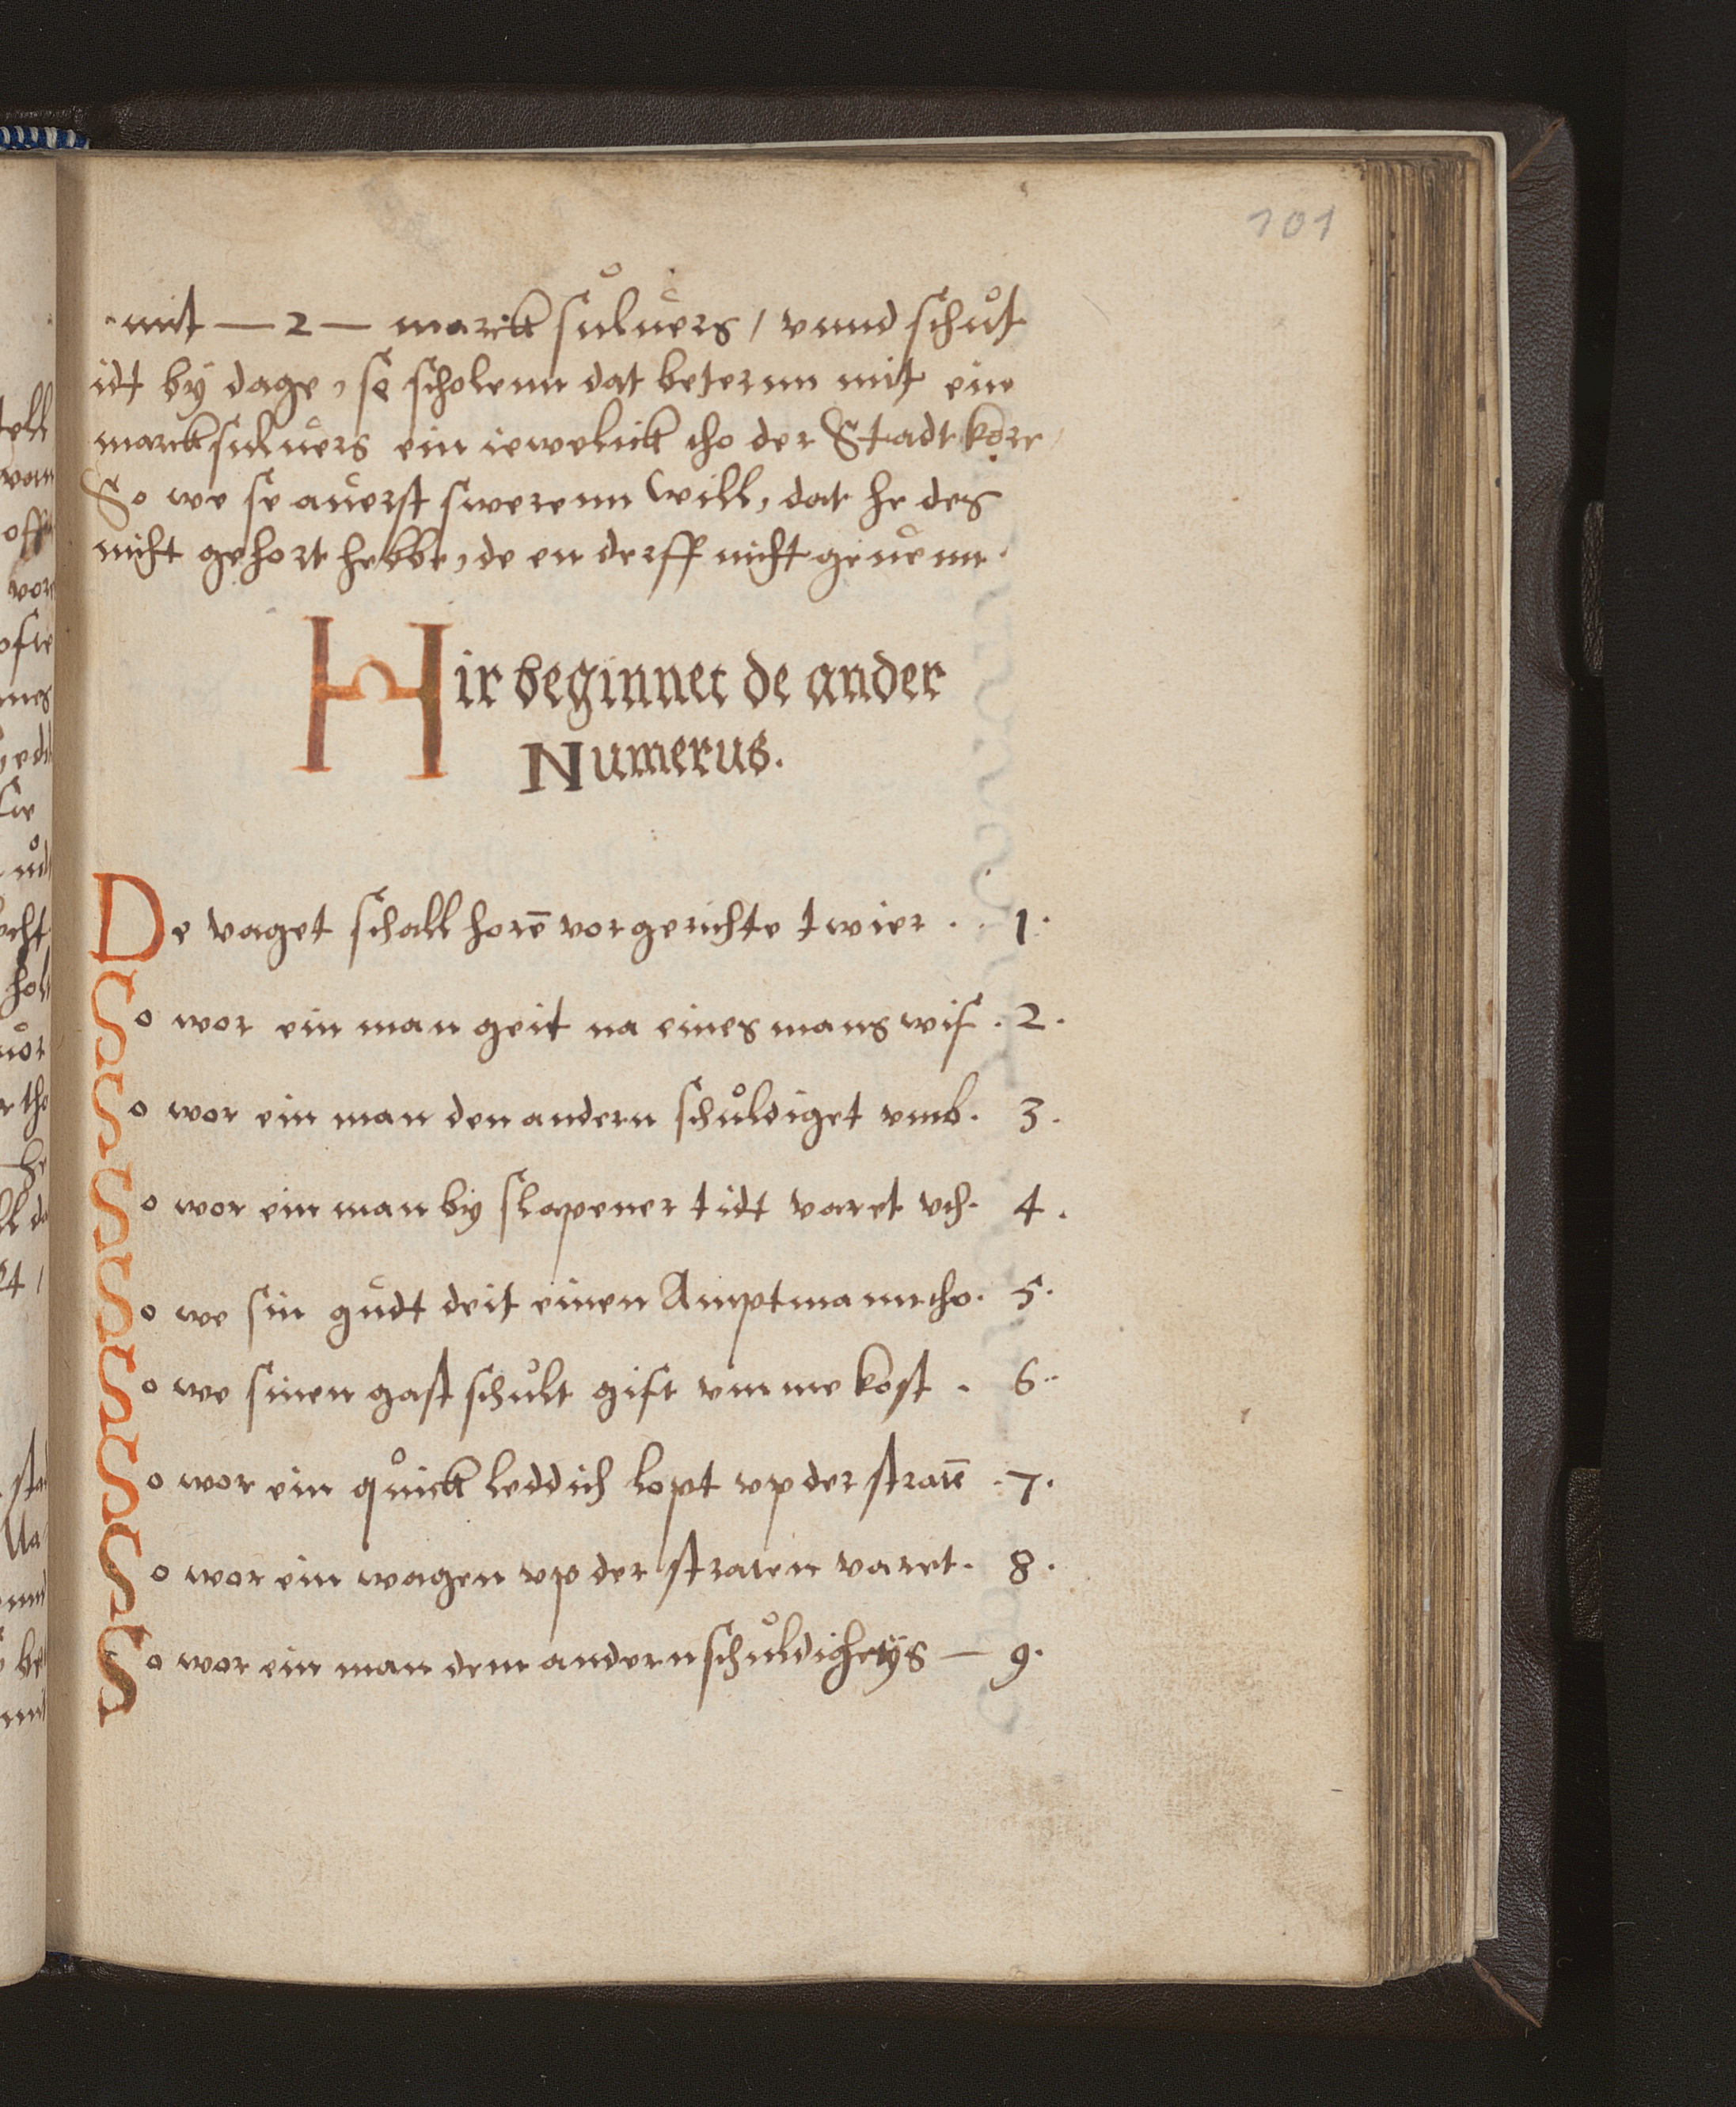 101
mit — 2 — marck sůluers / vnnd schůt
idt by dage, se scholenn dat beternn mit ein
marck suluers ein iewelick tho der Stadt kore /
So we se auerst swerenn will, dat he des
nicht gehort hebbe, de en derff nicht geuenn.
Hir beginnet de ander
Numerus.
De vaget schall horē vorgerichte twier . . 1.
So wor ein man geit na eines mans wif . 2.
So wor ein man den andern schůldiget vmb. 3.
So wor ein man by slapener tidt varet vth. 4.
So we sin gudt deit einen Amptmann tho. 5.
So we sinen gast schůlt gift vmme kost . 6.
So wor ein quick leddich lopt vp der stratē . 7.
So wor ein wagen vp der straten varet. 8.
So wor ein man dem andern schůldich ys — 9.